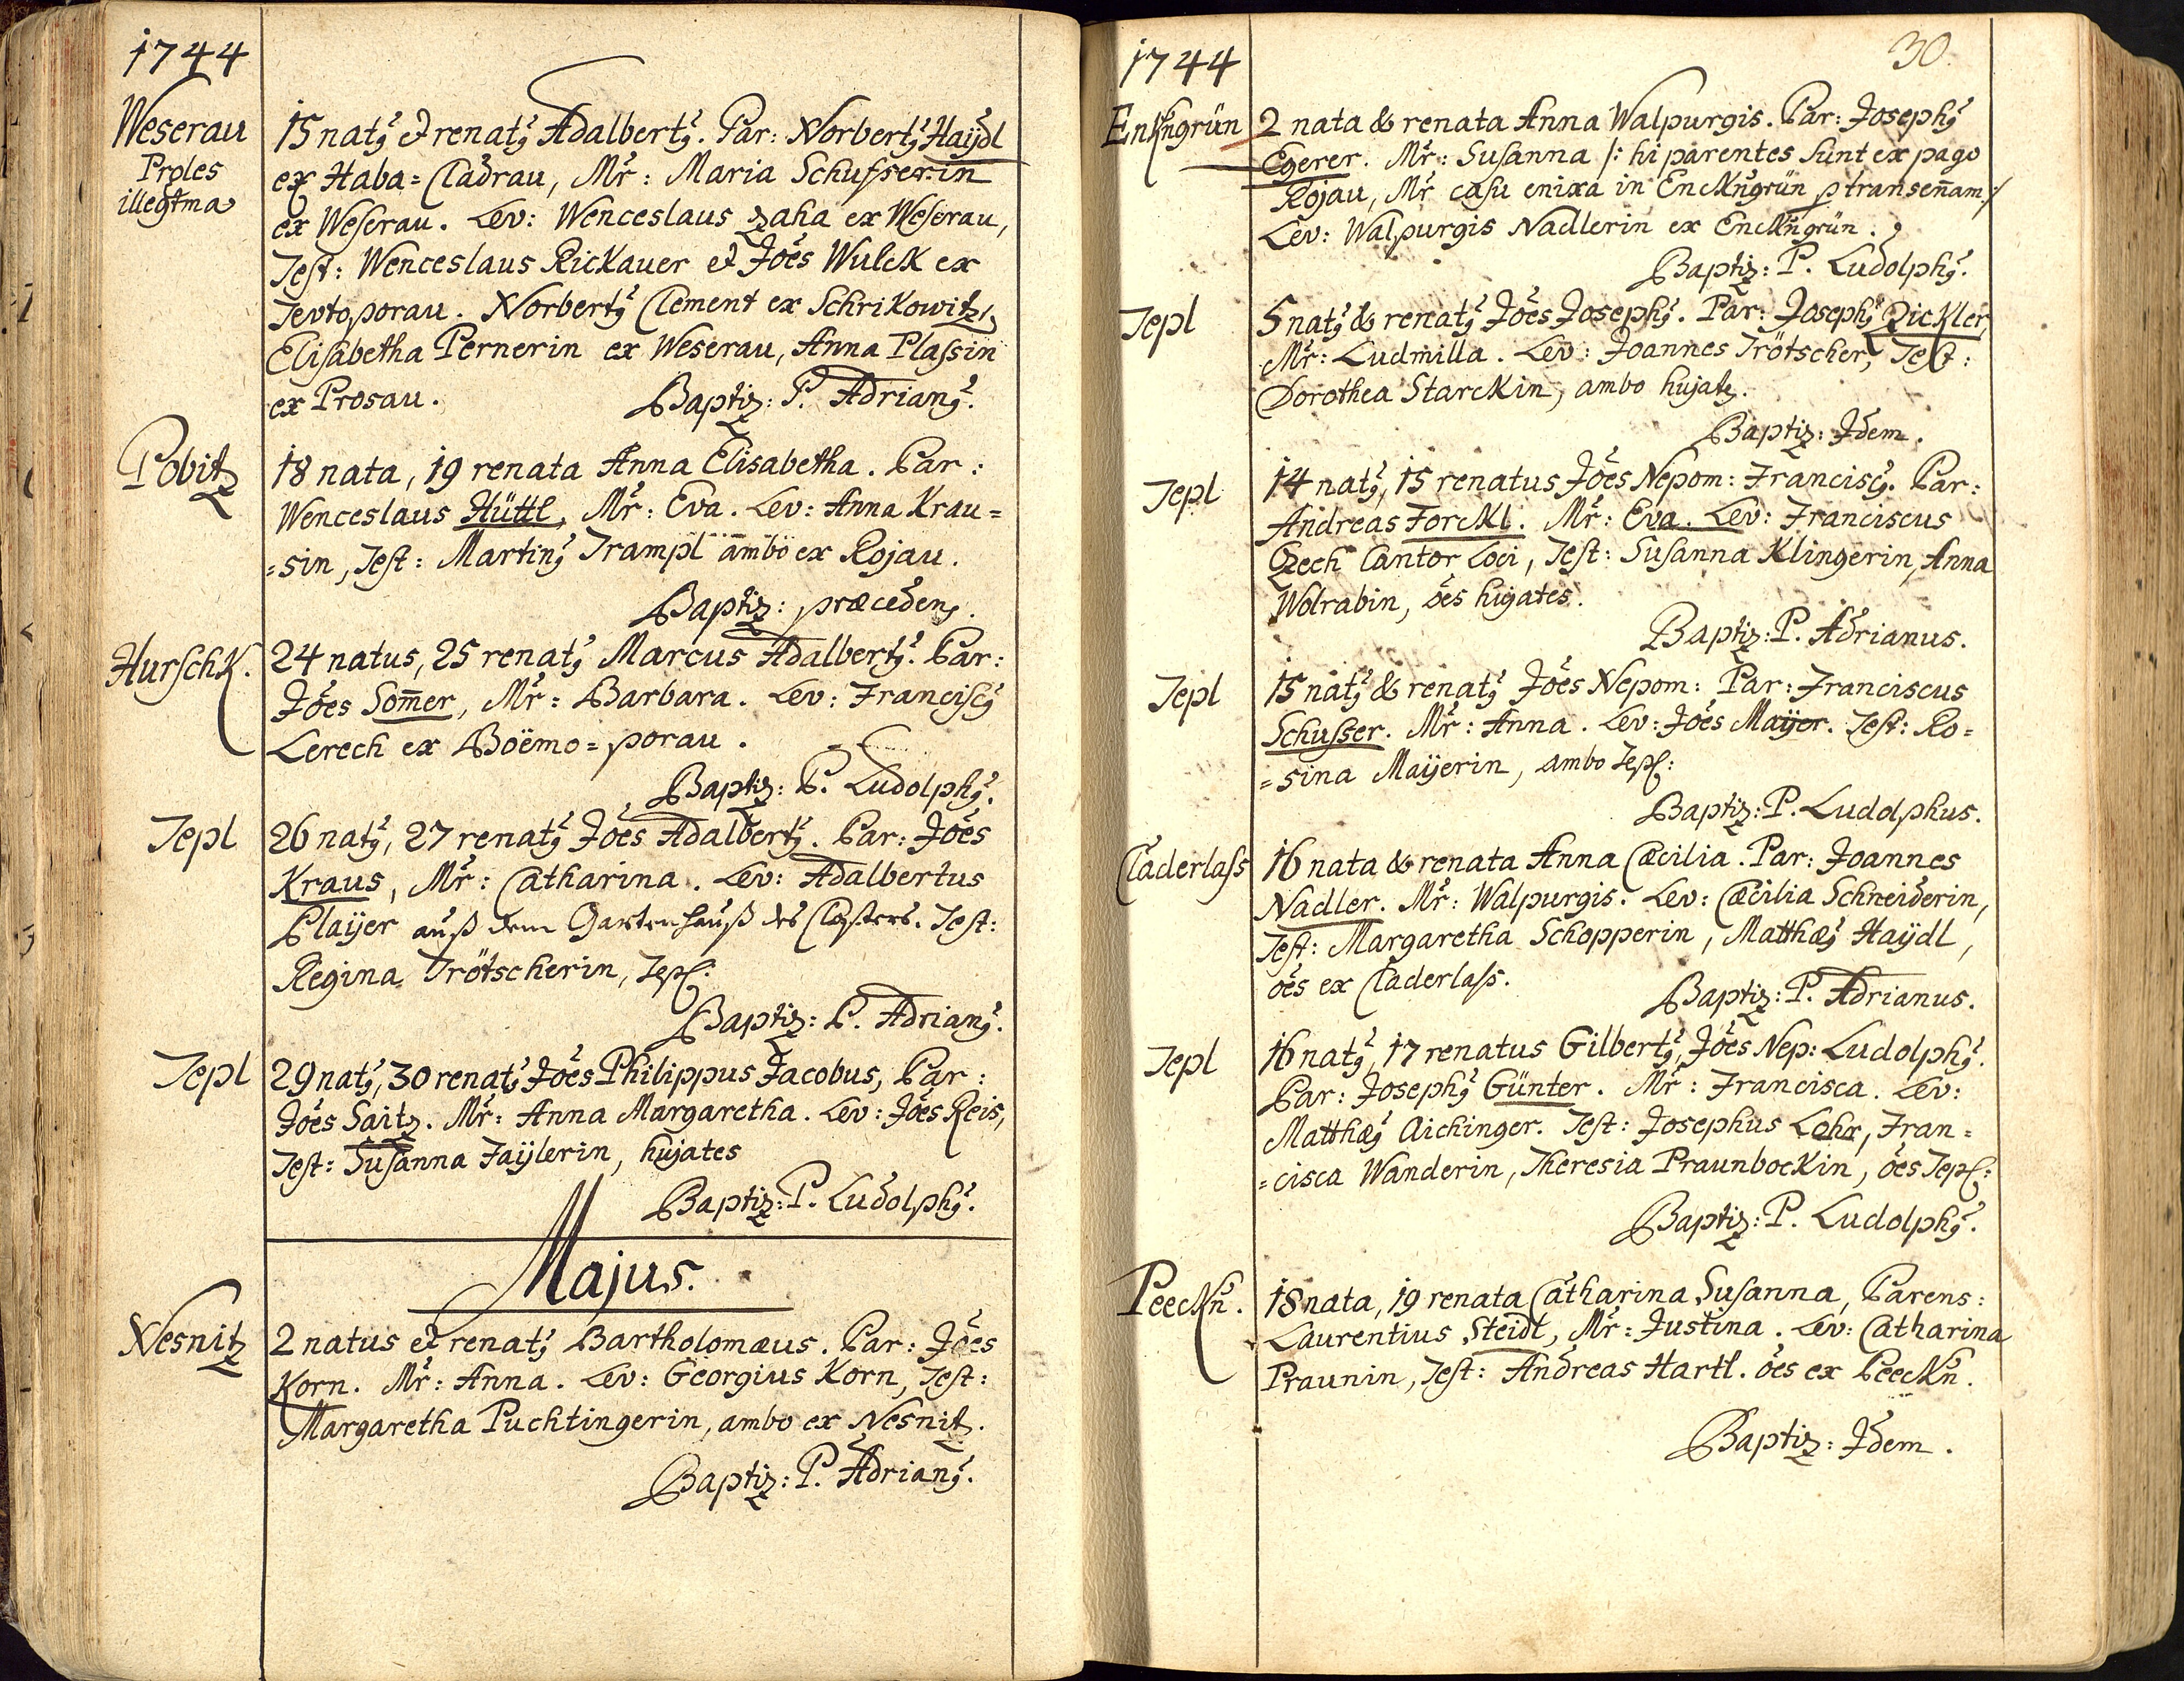 1744
Weserau
Proles
illegtma
15 natꝰ et renatꝰ Adalbertꝰ. Par: Norbertꝰ Haÿdl
ex Haba=Cladrau, Mr̃: Maria Schusserin
ex Weserau. Lev: Wenceslaus Zaha ex Weserau,
Test: Wenceslaus Rickauer et Jões Wulck ex
Tevtoporau. Norbertꝰ Clement ex Schrikowitz,
Elisabetha Pernerin ex Weserau, Anna Plassin
ex Prosau. Baptiz: P. Adrianꝰ.
Pobitz
18 nata, 19 renata Anna Elisabetha. Par:
Wenceslaus Hüttl, Mr̃: Eva. Lev: Anna Krau=
=sin, Test: Martinꝰ Trampl ambo ex Rojau.
Baptiz: præcedens.
Hurschk.
24 natus, 25 renatꝰ Marcus Adalbertꝰ. Par:
Jões Som̄er, Mr̃: Barbara. Lev: Franciscꝰ
Lerech ex Boëmo=porau.
Baptiz: P. Ludolphꝰ.
Tepl
26 natꝰ, 27 renatꝰ Jões Adalbertꝰ. Par: Jões
Kraus, Mr̃: Catharina. Lev: Adalbertus
Plaÿer auß dem Gartenhauß des Closters. Test:
Regina Trötscherin, Tepl:
Baptiz: P. Adrianꝰ.
Tepl
29 natꝰ, 30 renatꝰ Jões Philippus Jacobus, Par:
Jões Saitz. Mr̃: Anna Margaretha. Lev: Jões Reis,
Test: Susanna Faÿlerin, hujates
Baptiz: P. Ludolphꝰ.
Majus.
Nesnitz
2 natus et renatꝰ Bartholomæus. Par: Jões
Korn. Mr̃: Anna. Lev: Georgius Korn, Test:
Margaretha Puchtingerin, ambo ex Nesnitz.
Baptiz: P. Adrianꝰ.
1744
30.
Enkhngrün
2 nata & renata Anna Walpurgis. Par: Josephꝰ
Egerer. Mr̃: Susanna /: hi parentes sunt ex pago
Rojau, Mr̃ casu enixa in Enckñgrün p transenam :/
Lev: Walpurgis Nadlerin ex Enckñgrün.
Baptiz: P. Ludolphꝰ.
Tepl
5 natꝰ & renatꝰ Jões Josephꝰ. Par: Josephꝰ Pickler,
Mr̃: Ludmilla. Lev: Joannes Trötscher, Test:
Dorothea Starckin, ambo hujatz.
Baptiz: Idem.
Tepl
14 natꝰ, 15 renatus Jões Nepom: Franciscꝰ. Par:
Andreas Forckl. Mr̃: Eva. Lev: Franciscus
Czech Cantor Loci, Test: Susanna Klingerin, Anna
Wolrabin, oẽs hujates.
Baptiz: P. Adrianus.
Tepl
15 natꝰ & renatꝰ Jões Nepom: Par: Franciscus
Schusser. Mr̃: Anna. Lev: Jões Maÿer. Test: Ro=
=sina Maÿerin, ambo Tepl:
Baptiz: P. Ludolphus.
Claderlass
16 nata & renata Anna Cæcilia. Par: Joannes
Nadler. Mr̃: Walpurgis. Lev: Cæcilia Schneiderin,
Test: Margaretha Schopperin, Matthæꝰ Haÿdl,
oẽs ex Claderlass. Baptiz: P. Adrianus.
Tepl
16 natꝰ, 17 renatus Gilbertꝰ, Jões Nep: Ludolphꝰ.
Par: Josephꝰ Günter. Mr̃: Francisca. Lev:
Matthæꝰ Aichinger. Test: Josephus Lohr, Fran=
=cisca Wanderin, Theresia Praunbockin, oẽs Tepl:
Baptiz: P. Ludolphꝰ.
Peeckñ.
18 nata, 19 renata Catharina Susanna, Parens:
Laurentius Steidt, Mr̃: Justina. Lev: Catharina
Praunin, Test: Andreas Hartl. oẽs ex Peeckñ.
Baptiz: Idem.